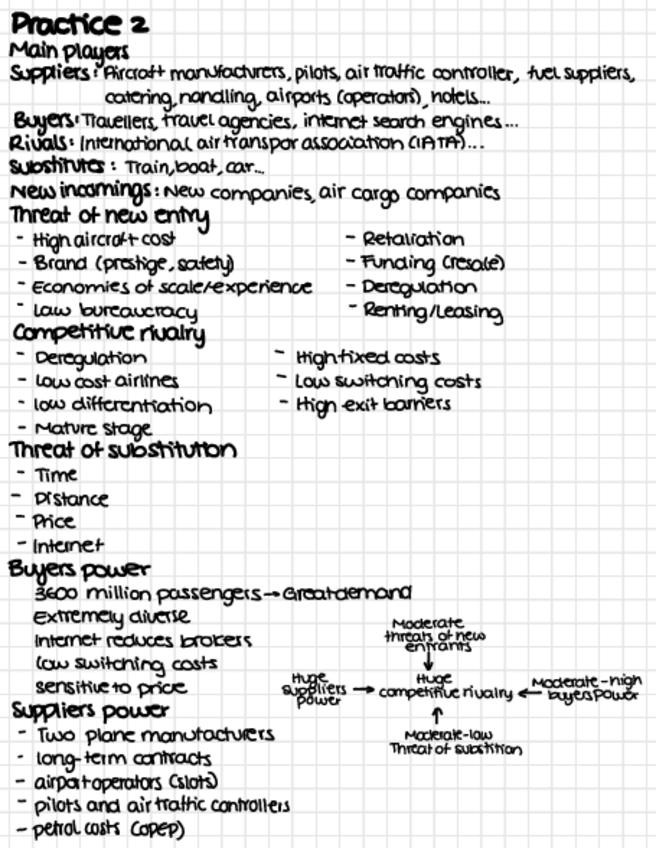 Practice 2
Main players
Suppliers: Aircraft manufacturers, pilots, air traffic controller, fuel suppliers,
catering, handling, airports (operators), hotels...
Buyers: Travellers, travel agencies, internet search engines...
Rivals: International air transpor association (IATA)...
Substitutes: Train, boat, car...
New incomings: New companies, air cargo companies
Threat of new entry
- High aircraft cost
- Brand (prestige, safety)
- Economies of scale/experience
- Law bureaucracy
- Retaliation
- Funding (resale)
- Deregulation
- Renting/Leasing
Competitive rivalry
- Deregulation
- Low cost airlines
- low differentiation
- Mature stage
- High fixed costs
- Low switching costs
- High exit barriers
Threat of substitution
- Time
- Distance
- Price
- Internet
Buyers power
3600 million passengers → Great demand
Extremely diverse
Internet reduces brokers
low switching costs
sensitive to price
Moderate
threats of new
entrants
↓
Huge
suppliers
power
→
Huge
competitive rivalry
←
Moderate-high
buyers power
↑
Moderate-low
Threat of substition
Suppliers power
- Two plane manufacturers
- long-term contracts
- airport operators (slots)
- pilots and air traffic controllers
- petrol costs (opep)